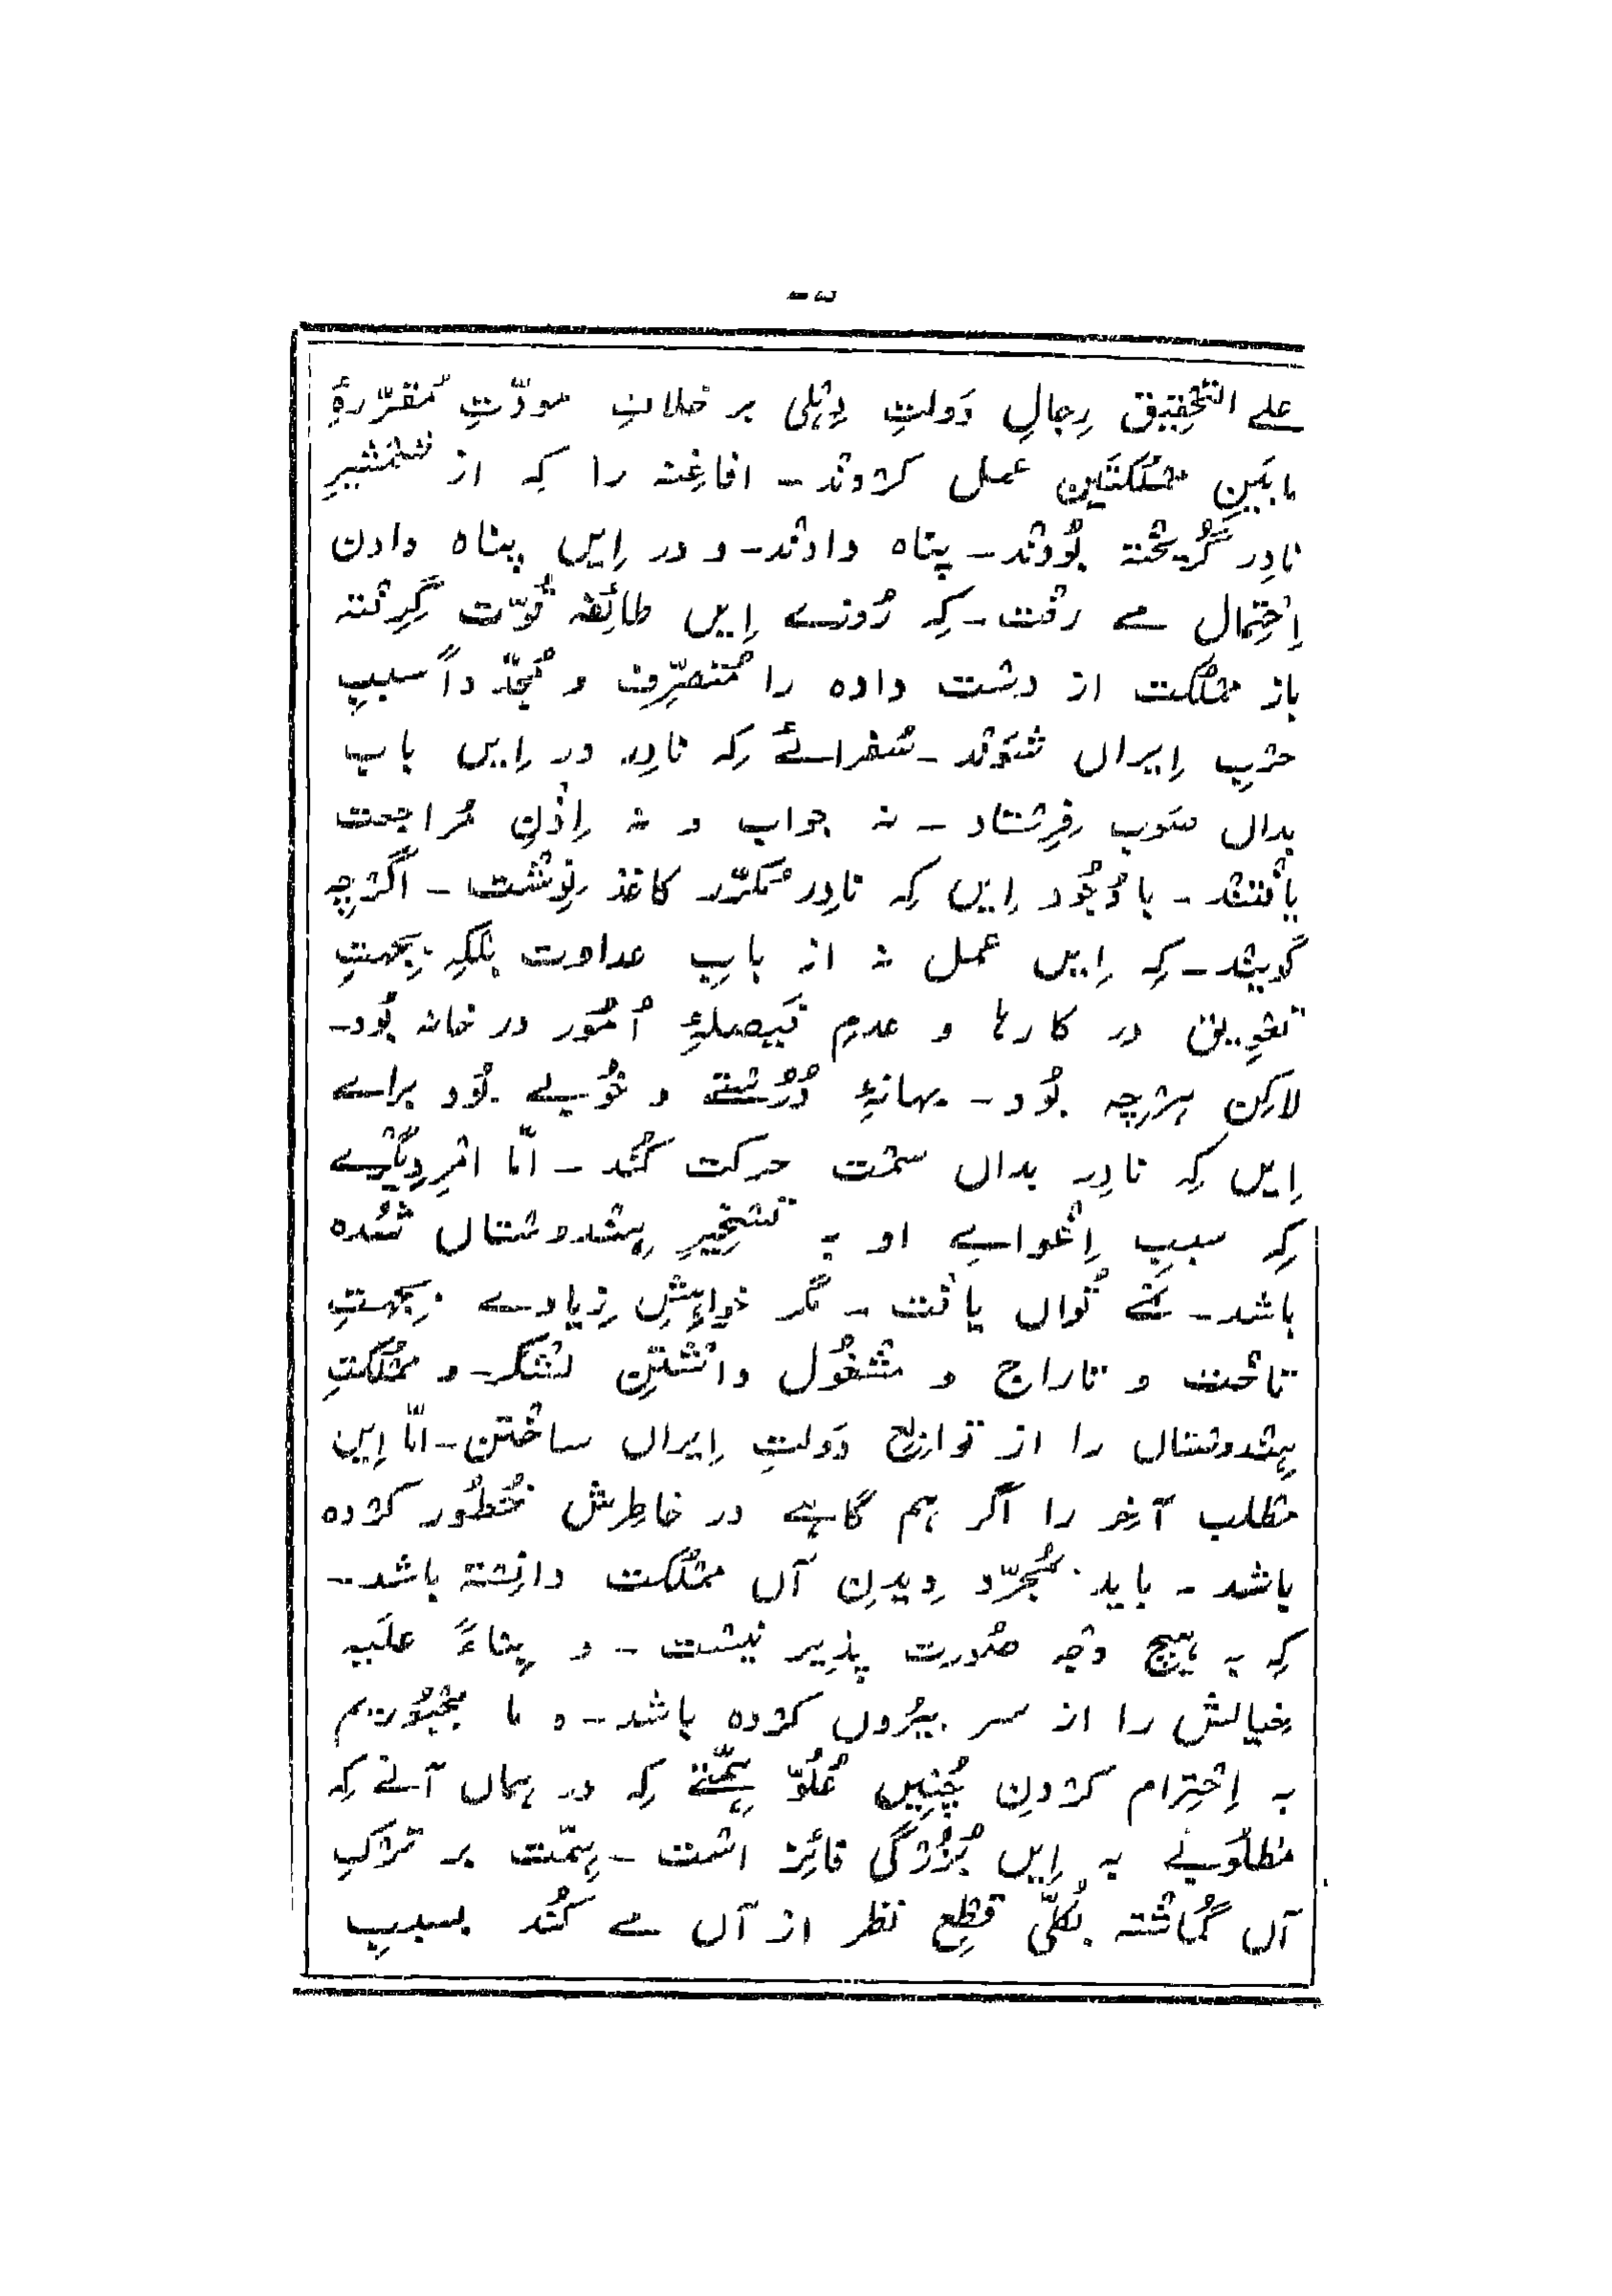 علے التّحقِیق رِجالِ دَولتِ دِہلی بر خلافِ مودّتِ مُقرّرۂِ
مابَینِ مملکتَین عمل کرْدند ـ افاغِنہ را کِہ از شمْشیرِ
نادِر گُریخْتہ بُودند ـ پناہ دادند ـ و در اِیں پناہ دادن
اِحْتِمال مے رفْت ـ کِہ رُوزے اِیں طائِفہ قُوّت گِرِفْتہ
باز ممْلکت از دسْت دادہ را مُتصرِّف و مُجدّداً سببِ
حرْبِ اِیراں شوَند ـ سُفرائے کِہ نادِر در اِیں باب
بداں صَوب فِرِسْتاد ـ نہ جواب و نہ اِذْنِ مُراجعت
یافْتند ـ باوُجُود اِیں کِہ نادِر مُکرّر کاغذ نِوِشْت ـ اگرْچِہ
گویند ـ کِہ اِیں عمل نہ از بابِ عداوت بلْکِہ بجِہتِ
تعْوِیق در کارہا و عدمِ فَیصلۂِ اُمُور در خانہ بُود ـ
لاکِن ہرْچِہ بُود ـ بہانۂِ دُرُسْتے و خُوبے بُود براے
اِیں کِہ نادِر بداں سمْت حرکت کُند ـ امّا امْرِ دِیگرے
کِہ سببِ اِغْواے او بہ تسْخِیرِ ہِنْدوسْتاں شُدہ
باشد ـ نمے تُواں یافْت ـ مگر خواہِشِ زِیادے بجِہتِ
تاخْت و تاراج و مشْغُول داشْتنِ لشْکر ـ و ممْلکتِ
ہِنْدوسْتاں را از توابِع دَولتِ اِیراں ساخْتن ـ امّا اِیں
مطْلب آخِر را اگر ہم گاہے در خاطِرش خُطُور کرْدہ
باشد ـ باید بمُجرّد دِیدنِ آں ممْلکت دانِسْتہ باشد ـ
کِہ بہ ہیچ وجْہ صُورت پذِیر نیسْت ـ و بِناءً علَیہ
خیالش را از سر بیرُوں کرْدہ باشد ـ و ما مجْبُوریم
بہ اِحْتِرام کرْدنِ چُنِیں عُلُوّ ہِمّتے کِہ در ہماں آنے کِہ
مطْلُوبے بہ اِیں بُزُرْگی فائِز اسْت ـ ہِمّت بر ترْکِ
آں گُماشْتہ بکُلّی قطْعِ نظر از آں مے کُند بسببِ